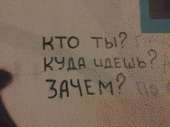 КТО ТЫ?
КУДА ИДЕШЬ?
ЗАЧЕМ?